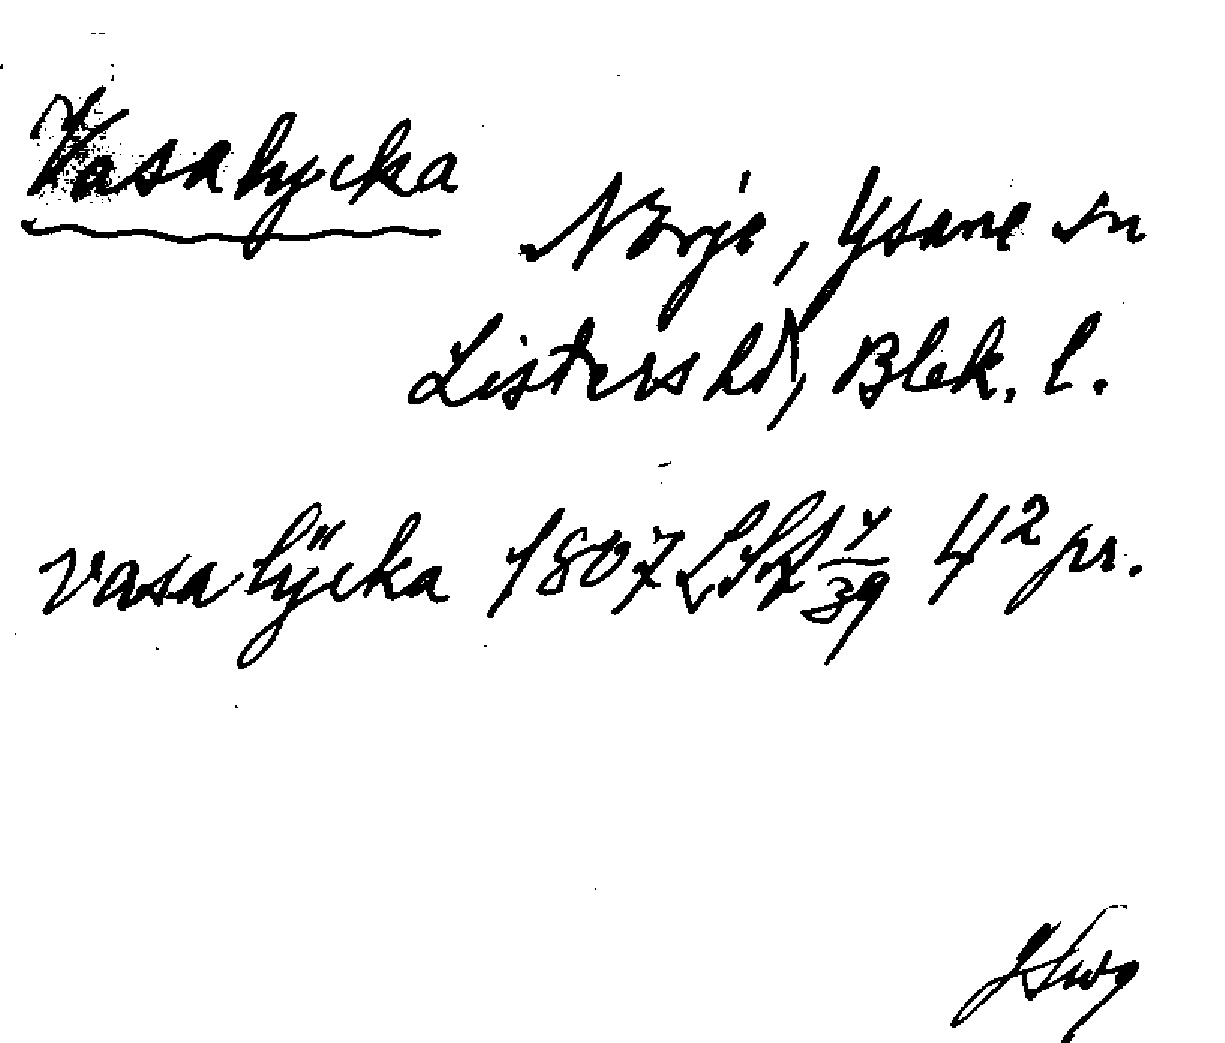 Vasalycka
Norje, Ysane sn
Listers hd, Blek. l.
vasalÿcka 1807 LSA 4/39 4² pr.